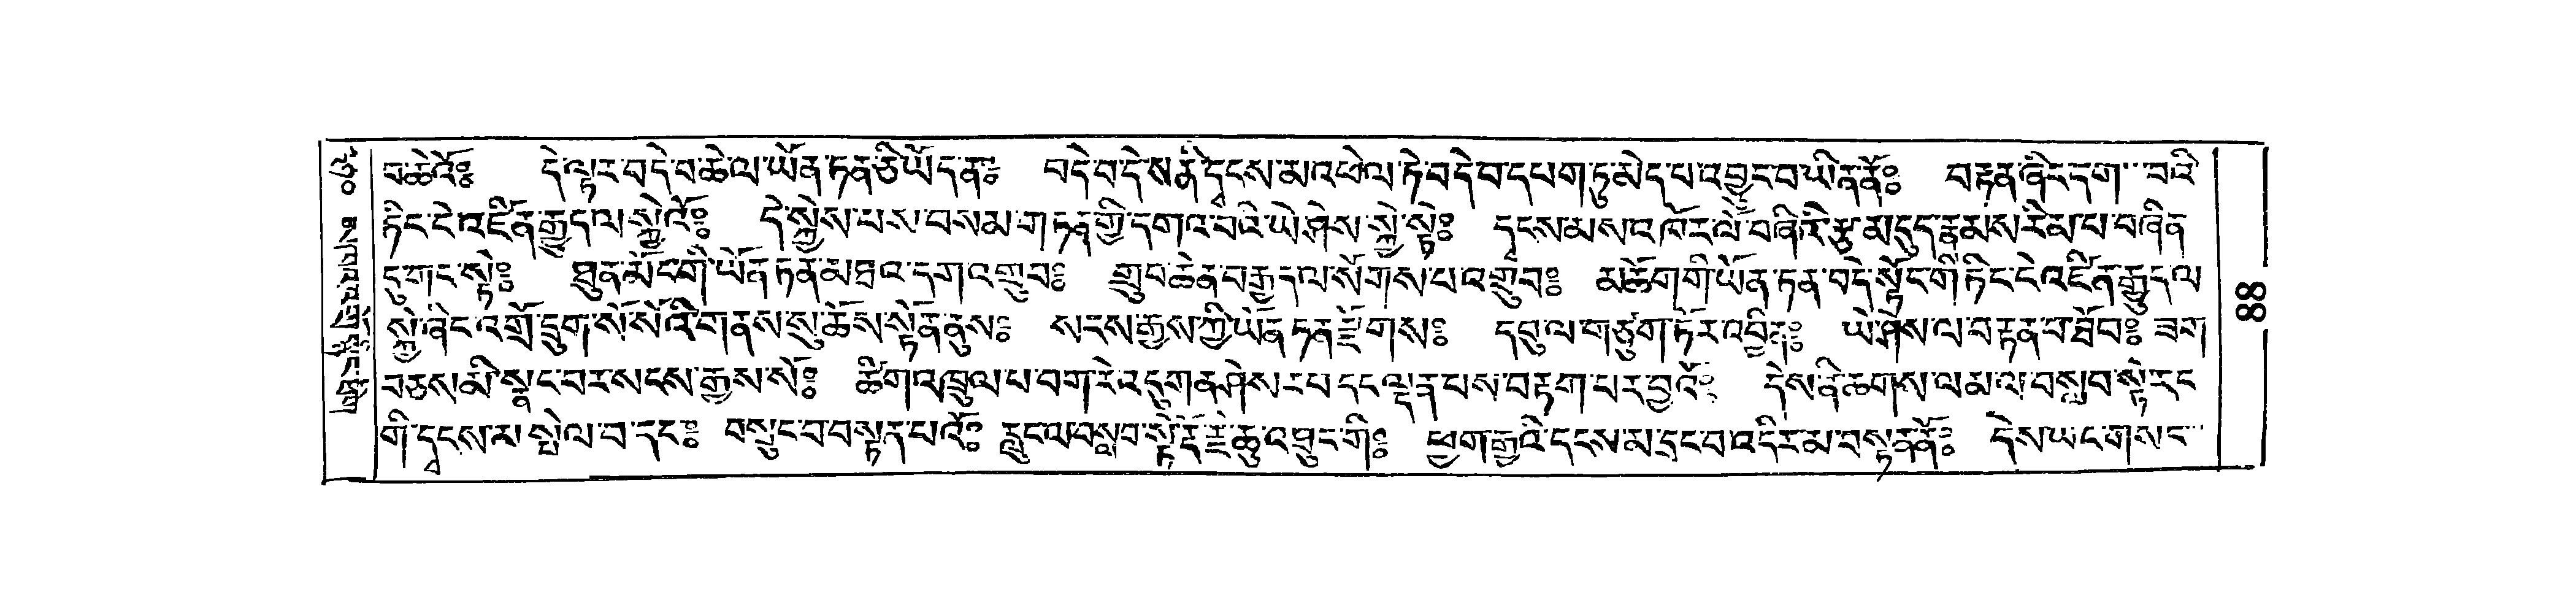 བ་ཆེའོ༔ དེ་ལྟར་བདེ་བ་ཆེ་ལ་ཡོན་ཏན་ཅི་ཡོད་ན༔ བདེ་བ་དེས་ནི་དྭངས་མ་འཕེལ་ཏེ་བདེ་བ་དཔག་ཏུ་མེད་པ་འབྱུང་བ་ཡིན་ནོ༔ བརྟན་ཞིང་དག་བའི
ཏིང་ངེ་འཛིན་རྒྱུད་ལ་སྐྱེའོ༔ དེ་སྐྱེས་པས་བསམ་གཏན་གྱི་དགའ་བའི་ཡེ་ཤེས་སྐྱེ་སྟེ༔ དྭངས་མས་འཁོར་ལོ་བཞིའི་རྩ་མདུད་རྣམས་རིམ་པ་བཞིན
དུ་གང་སྟེ༔ ཐུན་མོང་གི་ཡོན་ཏན་མཐའ་དག་འགྲུབ༔ གྲུབ་ཆེན་བརྒྱད་ལ་སོགས་པ་འགྲུབ༔ མཆོག་གི་ཡོན་ཏན་བདེ་སྟོང་གི་ཏིང་ངེ་འཛིན་རྒྱུད་ལ
སྐྱེ་ཞིང་འགྲོ་དྲུག་སོ་སོའི་གནས་སུ་ཆོས་སྟོན་ནུས༔ སངས་རྒྱས་ཀྱི་ཡོན་ཏན་རྫོགས༔ དབུ་ལ་གཙུག་ཏོར་འབྱིན༔ ཡེ་ཤེས་ལ་བརྟན་བ་ཐོབ༔ ཟག
བཅས་མི་སྣང་བར་སངས་རྒྱས་སོ༔ ཚིག་འཁྲུལ་པ་བག་རེ་འདུག་ན་ཤེས་རབ་དང་ལྡན་པས་བརྟག་པར་བྱའོ༔ དེས་ནི་ཆགས་ལམ་ལ་བསླབ་སྟེ་རང
གི་དྭངས་མ་སྤེལ་བ་དང༔ བསྲུང་བ་བསྟན་པའོ༔ རླུང་ལ་བསླབ་སྟེ་རྡོ་རྗེ་ཆུ་འཐུང་གི༔ ཕྱག་རྒྱའི་དྭངས་མ་དྲང་བ་འདིར་མ་བསྟན་ནོ༔ དེས་ཡང་གསང